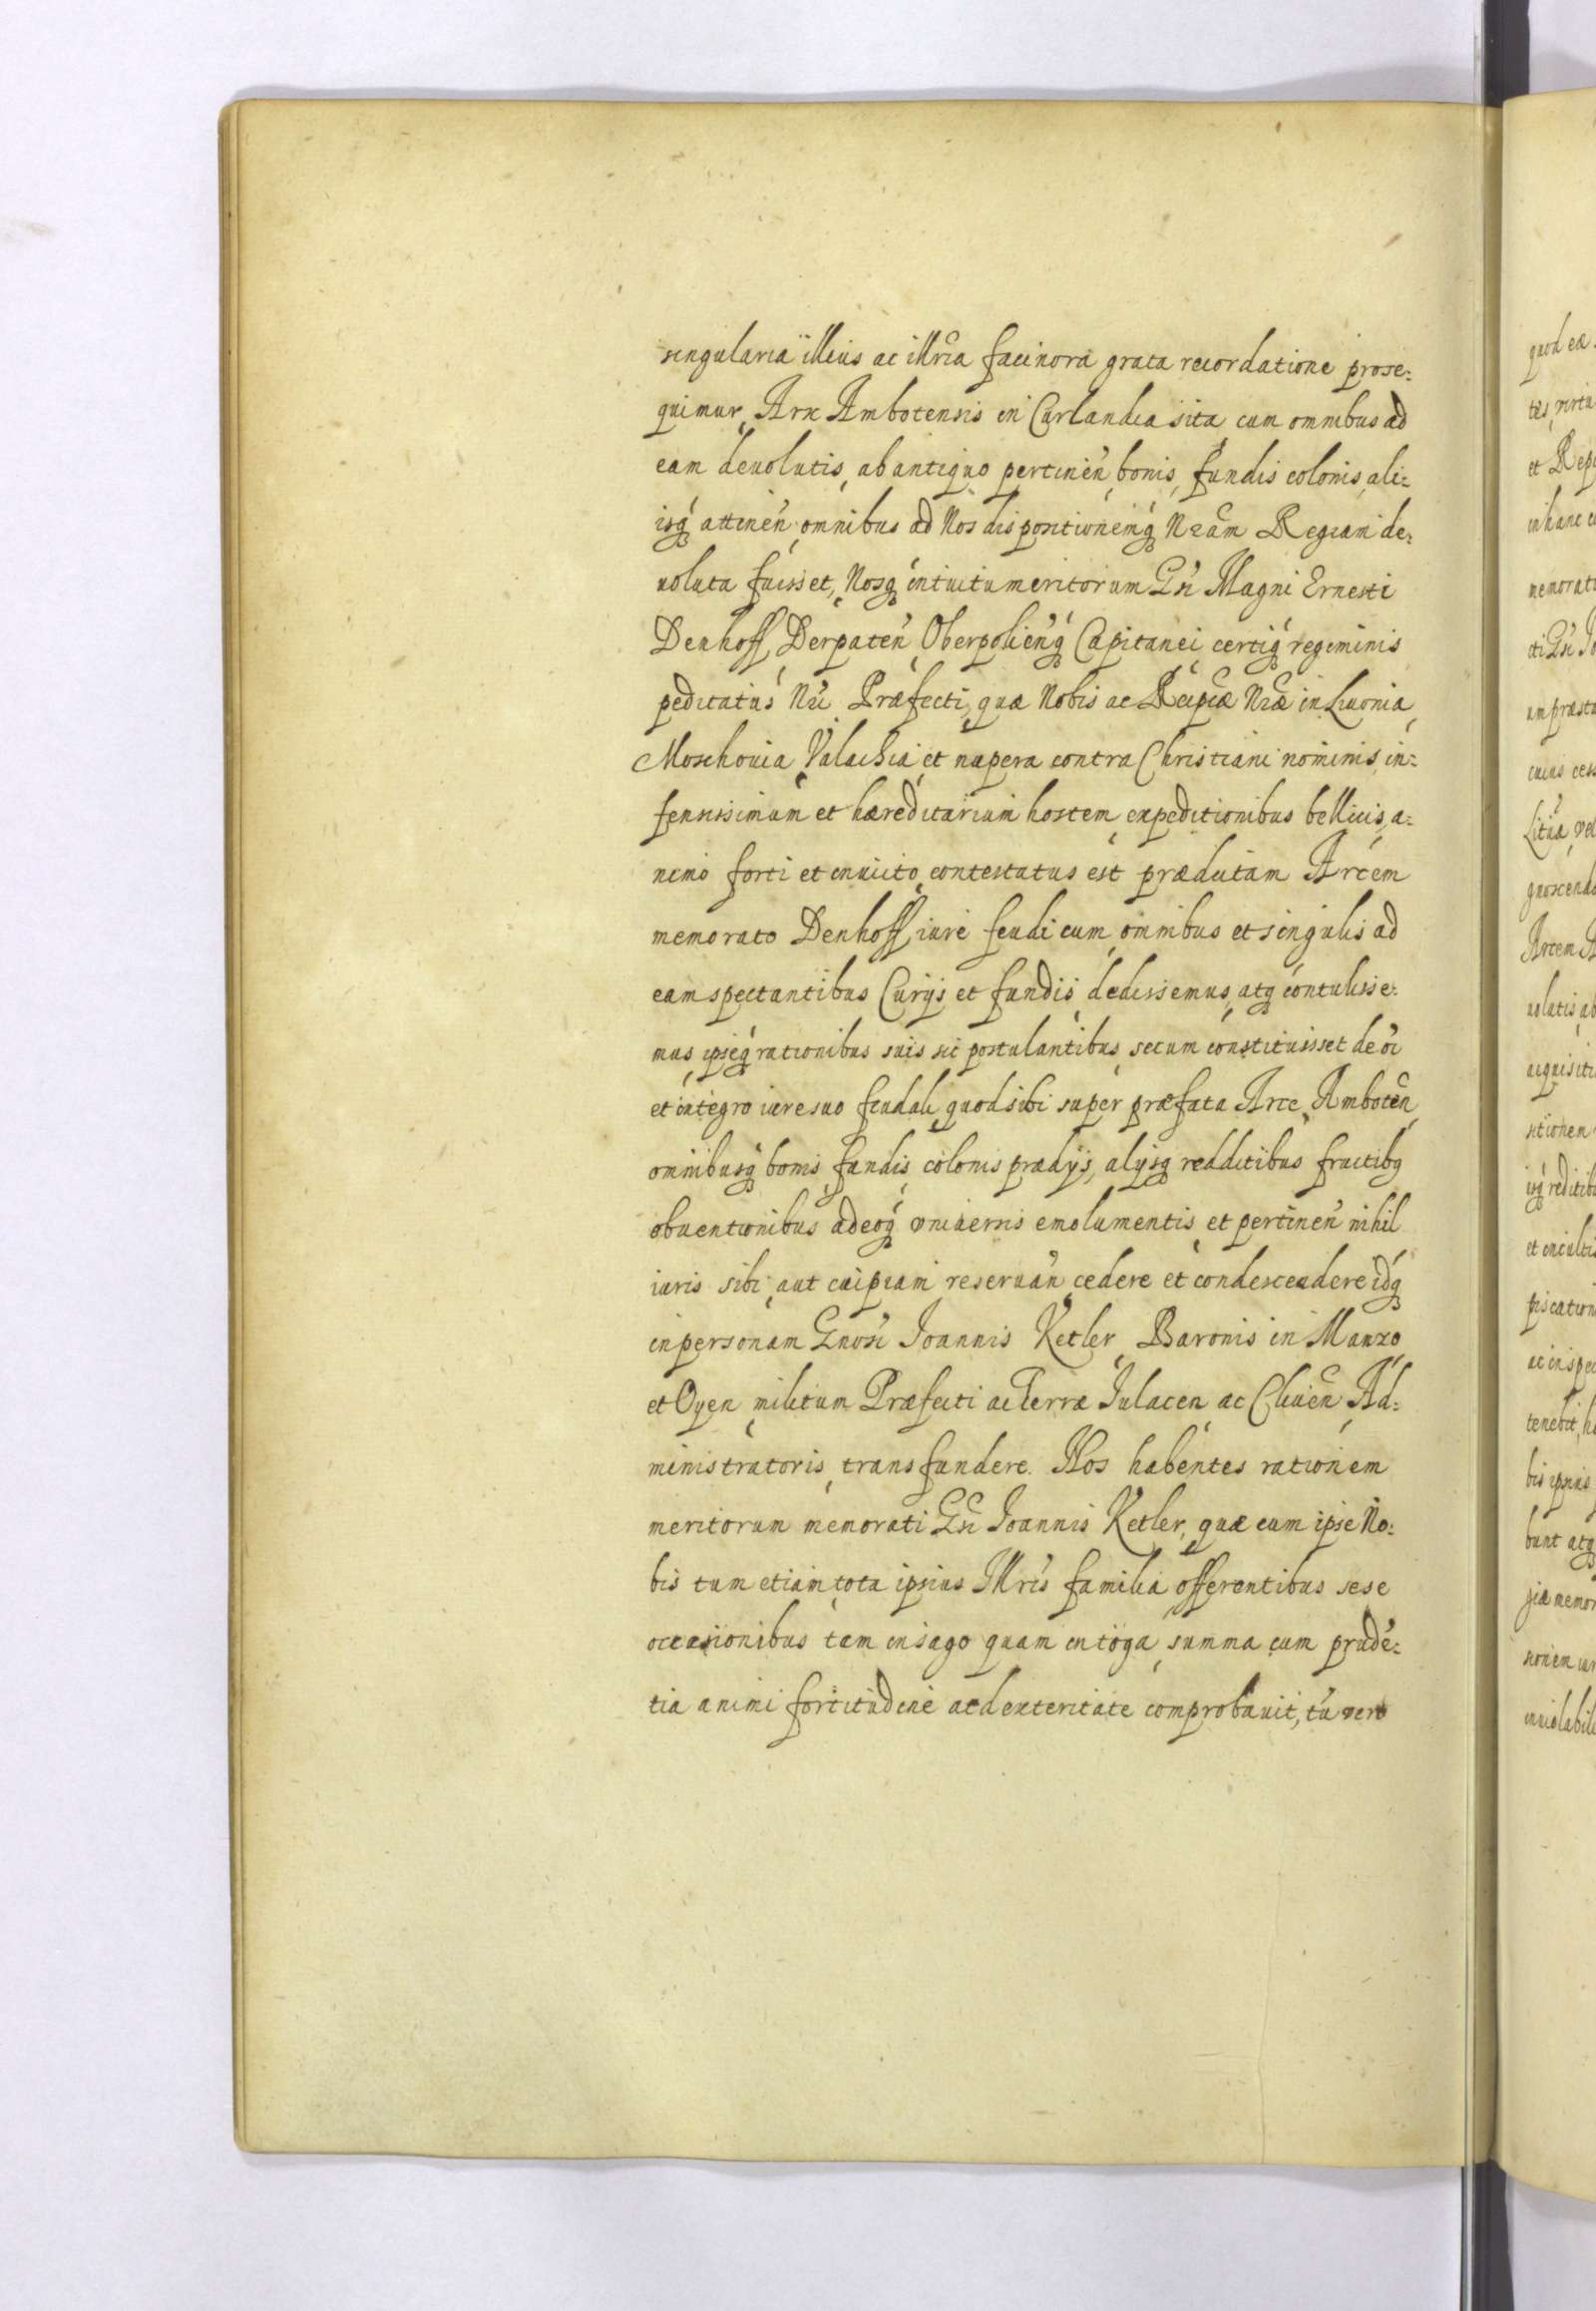 singularia illius ac illŕia facinora grata recordatione prose:
quimur, Arx Ambotensis in Curlandia sita cum omnibus ad
eam deuolutis, ab antiquo pertineń bonis, fundis colonis, ali:
isq́ attineń omnibus ad Nos dispositionemq́ Nrãm Regiam de:
uoluta fuisset, Nosq́ intuitu meritorum Gsi Magni Ernesti
Denhoff, Derpateń Oberpolieńq́ Capitanei certiq́ regiminis
peditatus Nri Præfecti, quæ Nobis ac Reipcæ Nræ in Liuonia,
Moschouia, Valachia, et nupera contra Christiani nominis in:
fensissimum et hæreditarium hostem, expeditionibus bellicis, a:
nimo forti et inuicto, contestatus est prædictam Arcem
memorato Denhoff, iure feudi cum omnibus et singulis ad
eam spectantibus Curijs et fundis dedissemus, atq́ contulisse:
mus, ipseq́ rationibus suis sic postulantibus, secum constituisset de oi
et integro iure suo feudali, quod sibi super præfata Arce Amboteń,
omnibusq́ bonis, fundis, colonis prædijs, alijsq́ redditibus fructibq
obuentionibus adeoq́ vniuersis emolumentis, et pertineń nihil
iuris sibi, aut cuipiam reseruań, cedere et condescendere idq́
in personam Gnosi Joannis Ketler, Baronis in Manzo
et Oyen, militum Præfecti ac Terræ Julacen, ac Cliueń Ad:
ministratoris, transfundere. Nos habentes rationem
meritorum memorati Gsi Joannis Ketler, quæ cum ipse No:
bis tum etiam tota ipsius Illris familia offerentibus sese
occasionibus tam in sago quam in toga, summa cum prudẽ:
tia animi fortitudine ac dexteritate comprobauit, tũ vero
quod ea
tes, virtu
et Reip
in hanc
memorati
cti Gsi Jo
um præsta
cuius cess
Lituæ, vel
gnoscend
Arcem A
uolutis, ab
acquisiti
sitionem
isq́ reditib
et incultis
piscation
ac in spec
tenebit, h
bis ipsius
bunt atq
giæ memor
sionem iur
inuiolabili